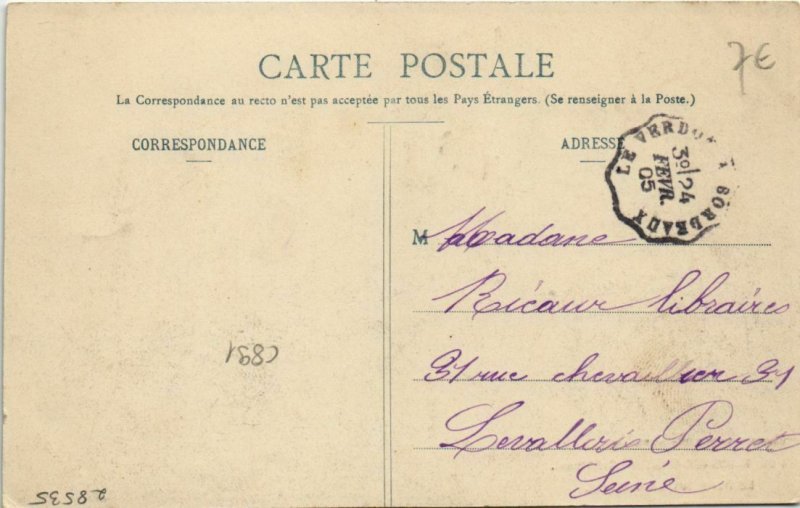 7€
CARTE POSTALE
La Correspondance au recto n'est pas acceptée par tous les Pays Étrangers. (Se renseigner à la Poste.)
CORRESPONDANCE
ADRESSE
LE VERDON A BORDEAUX
3º/24
FEVR.
05
M Madame
Ricaux libraires
31 rue chevallier 31
Levallois Perret
Seine
C891
28535